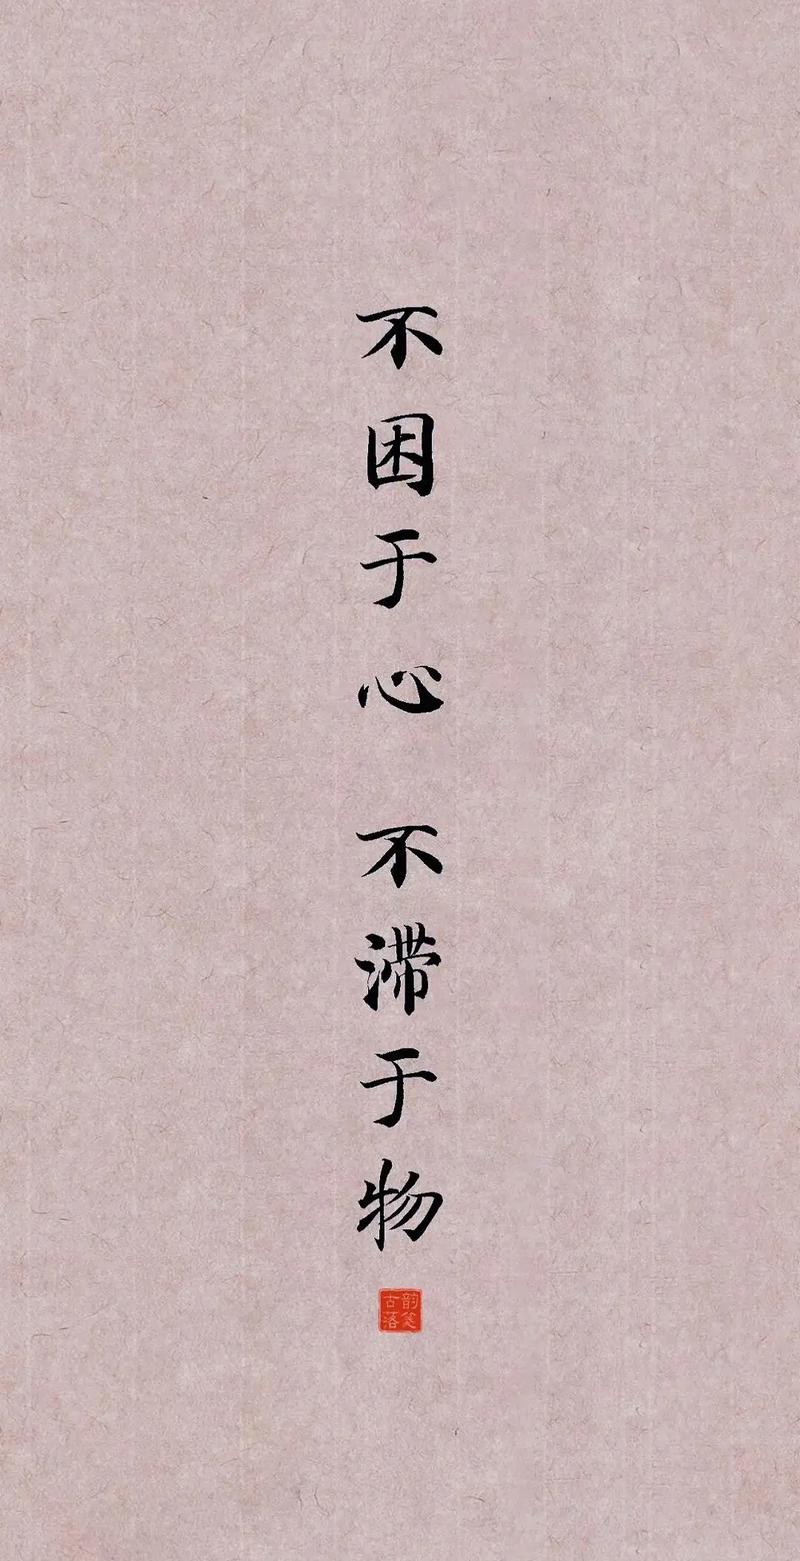 不困于心 不滞于物
韵笺
古落